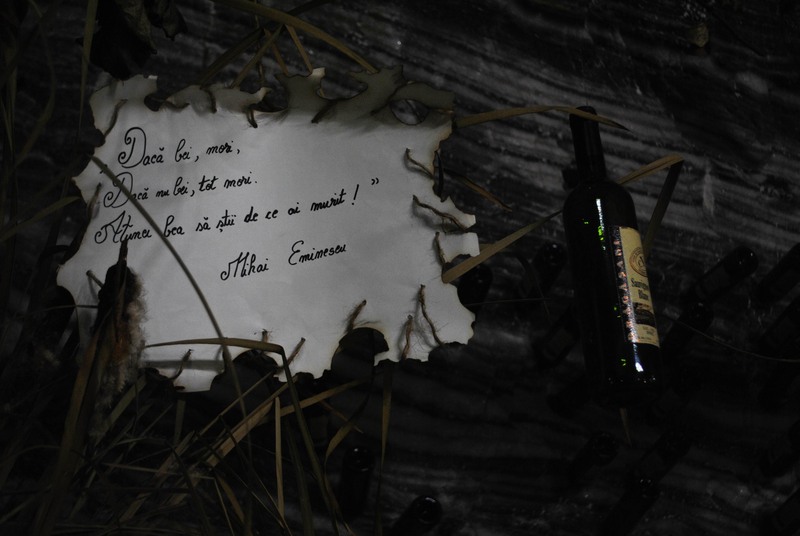 Dacă bei, mori,
Dacă nu bei, tot mori.
Atunci bea să știi de ce ai murit! ”
Mihai Eminescu
Sauvignon
Blanc